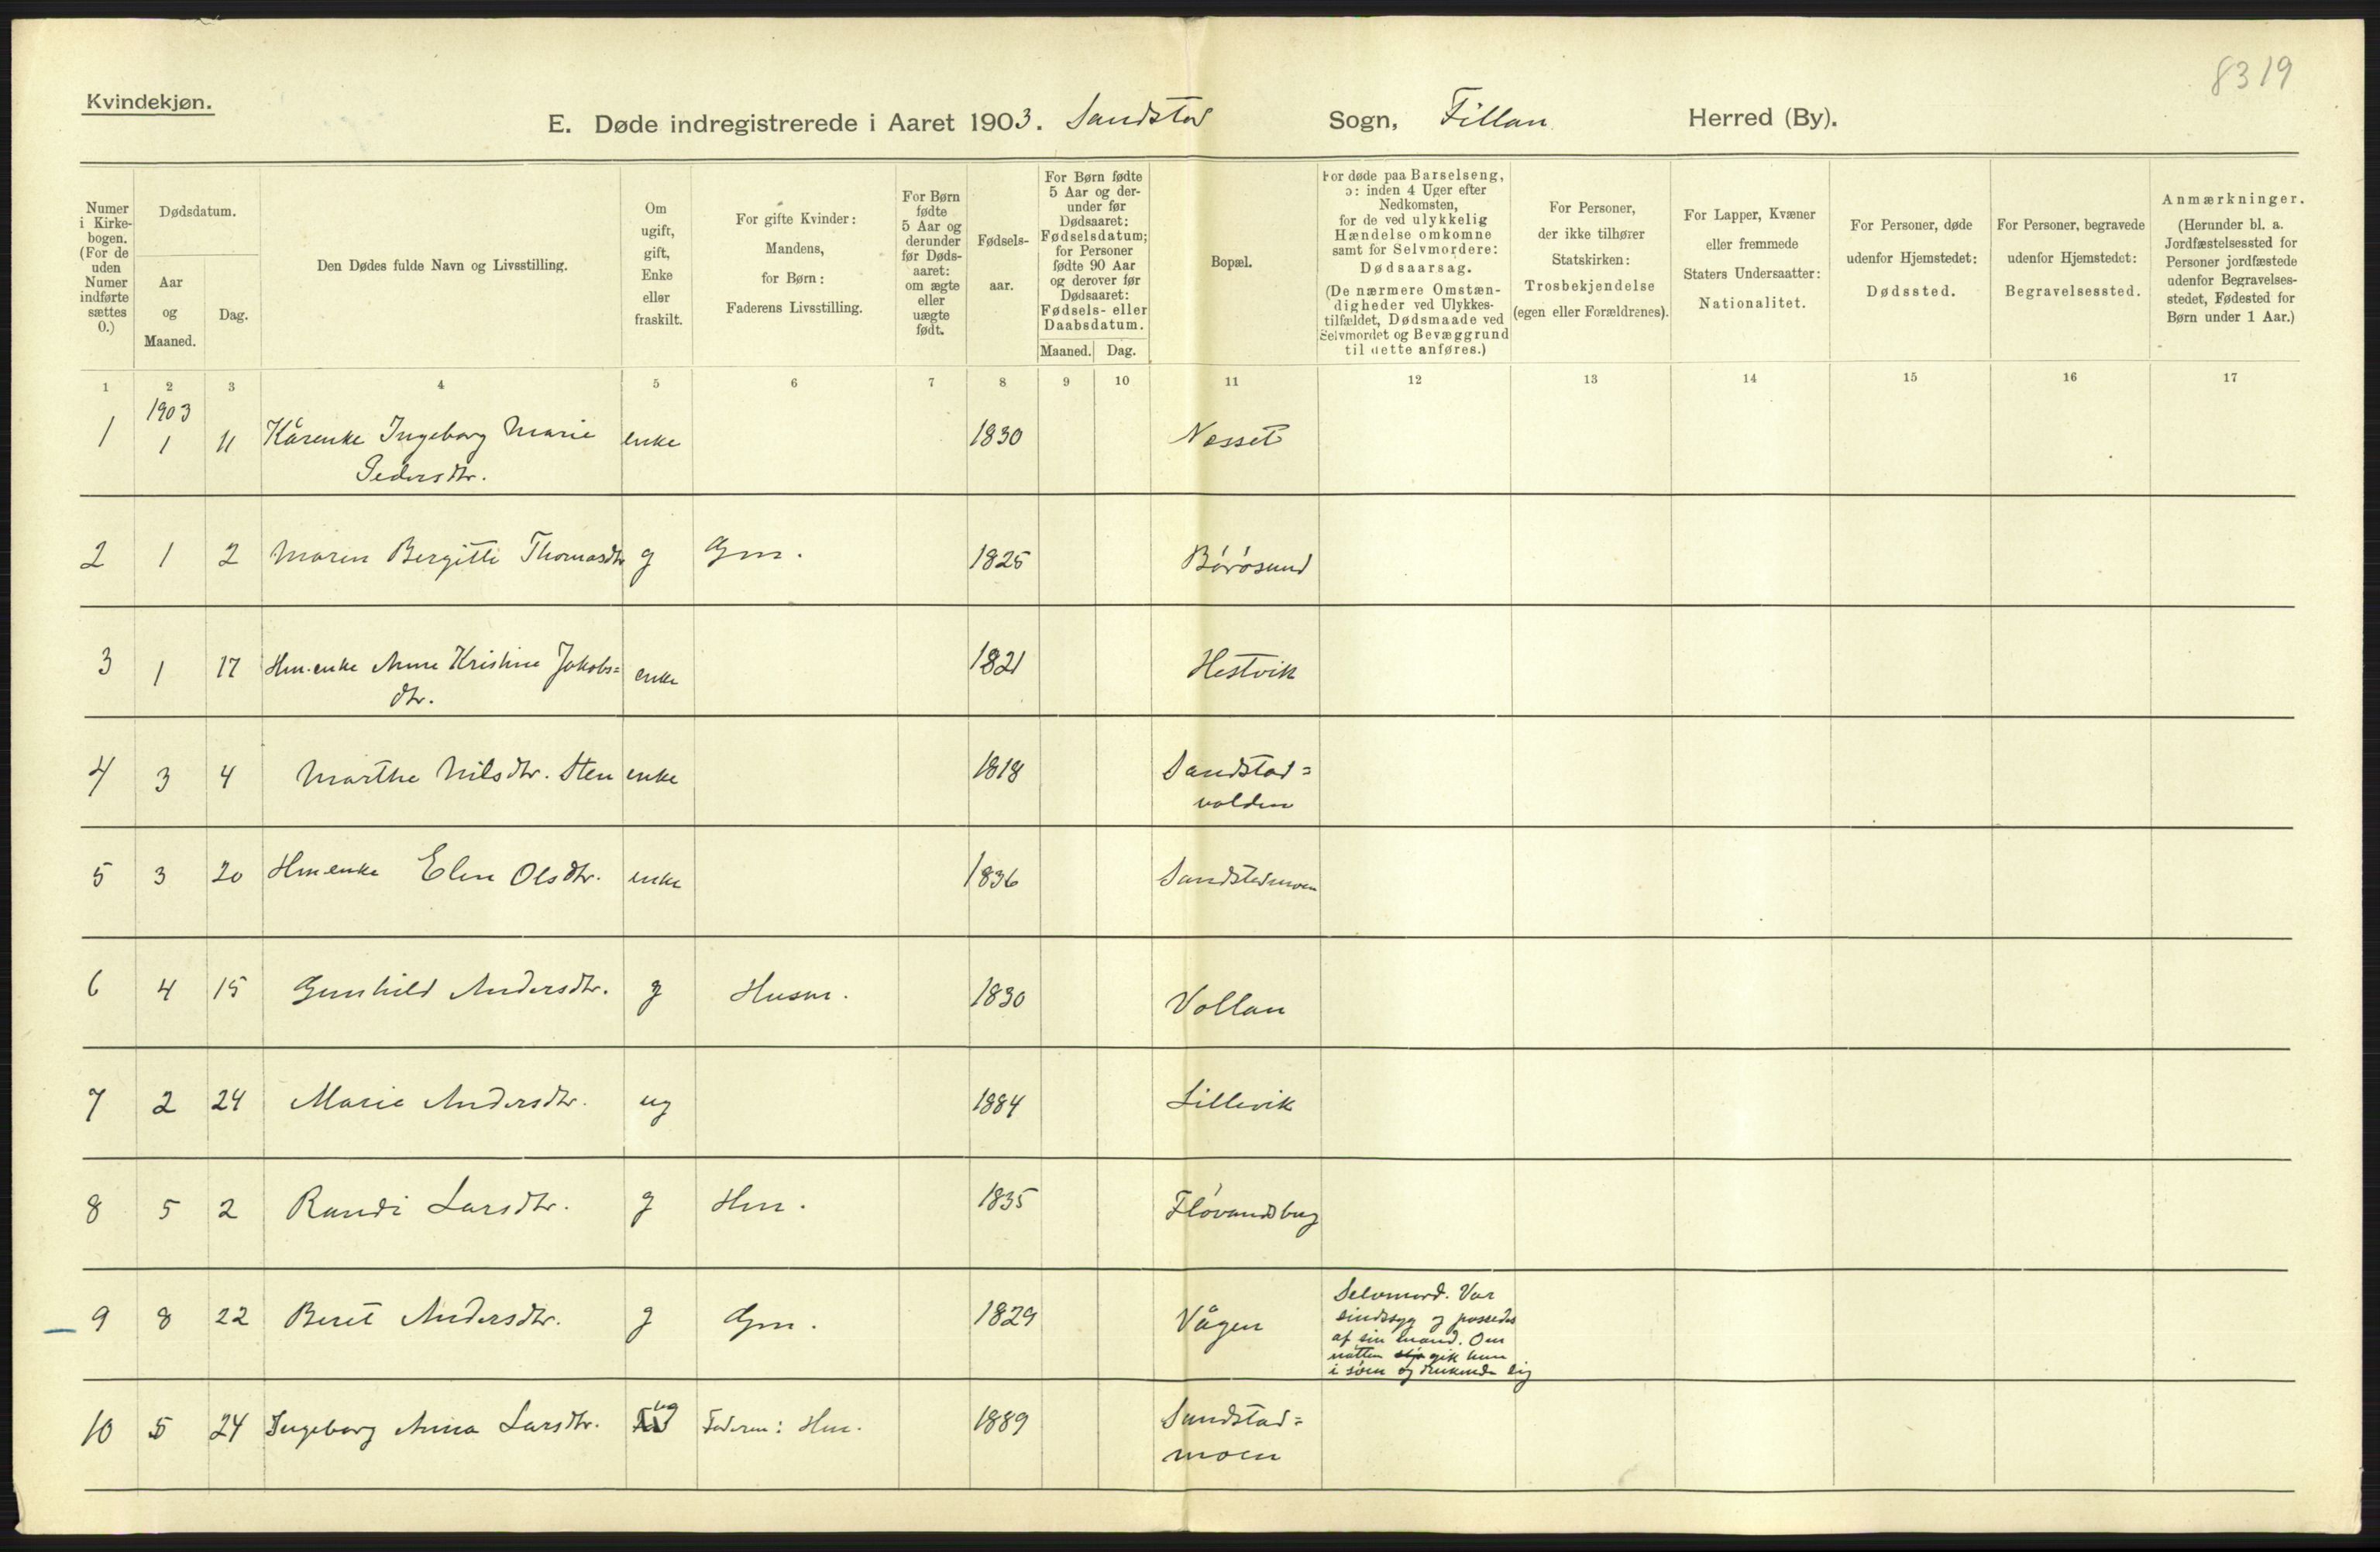 8319
Kvindekjøn.
E. Døde indregistrerede i Aaret 1903. Sandstad Sogn, Fillan Herred (By).
Numer i Kirkebogen. (For de uden Numer indførte sættes 0.)
Dødsdatum.
Aar og Maaned.
Dag.
Den Dødes fulde Navn og Livsstilling.
Om ugift, gift, Enke eller fraskilt.
For gifte Kvinder: Mandens, for Børn: Faderens Livsstilling.
For Børn fødte 5 Aar og derunder før Dødsaaret: om ægte eller uægte født.
Fødselsaar.
For Børn fødte 5 Aar og derunder før Dødsaaret: Fødselsdatum; for Personer fødte 90 Aar og derover før Dødsaaret: Fødsels- eller Daabsdatum.
Maaned. Dag.
Bopæl.
For døde paa Barselseng, ɔ: inden 4 Uger efter Nedkomsten, for de ved ulykkelig Hændelse omkomne samt for Selvmordere: Dødsaarsag. (De nærmere Omstændigheder ved Ulykkestilfældet, Dødsmaade ved Selvmordet og Bevæggrund til dette anføres.)
For Personer, der ikke tilhører Statskirken: Trosbekjendelse (egen eller Forældrenes).
For Lapper, Kvæner eller fremmede Staters Undersaatter: Nationalitet.
For Personer, døde udenfor Hjemstedet: Dødssted.
For Personer, begravede udenfor Hjemstedet: Begravelsessted.
Anmærkninger. (Herunder bl. a. Jordfæstelsessted for Personer jordfæstede udenfor Begravelsesstedet, Fødested for Børn under 1 Aar.)
1 2 3 4 5 6 7 8 9 10 11 12 13 14 15 16 17
1903
1 1 11 Kårenke Ingeborg Marie enke 1830 Nesset
Pedersdtr.
2 1 2 Maren Bergitte Thomasdtr g Gm. 1825 Børøsund
3 1 17 Hm.enke Anne Kristine Jakobs= enke 1821 Hestvik
dtr.
4 3 4 Marthe Nilsdtr. Sten enke 1818 Sandstad=
volden
5 3 20 Hmenke Elen Olsdtr. enke 1836 Sandstadmoen
6 4 15 Gunhild Andersdtr. g Husm. 1830 Vollan
7 2 24 Marie Andersdtr. ug 1884 Lillevik
8 5 2 Randi Larsdtr. g Hm. 1835 Fløvandsbug
9 8 22 Beret Andersdtr. g Gm. 1829 Vågen
Selvmord. Var
sindssyg og passedes
af sin mand. Om
natten gik hun
i søen og druknede sig
10 5 24 Ingeborg Anna Larsdtr. ug Faderen: Hm. 1889 Sandstad=
moen